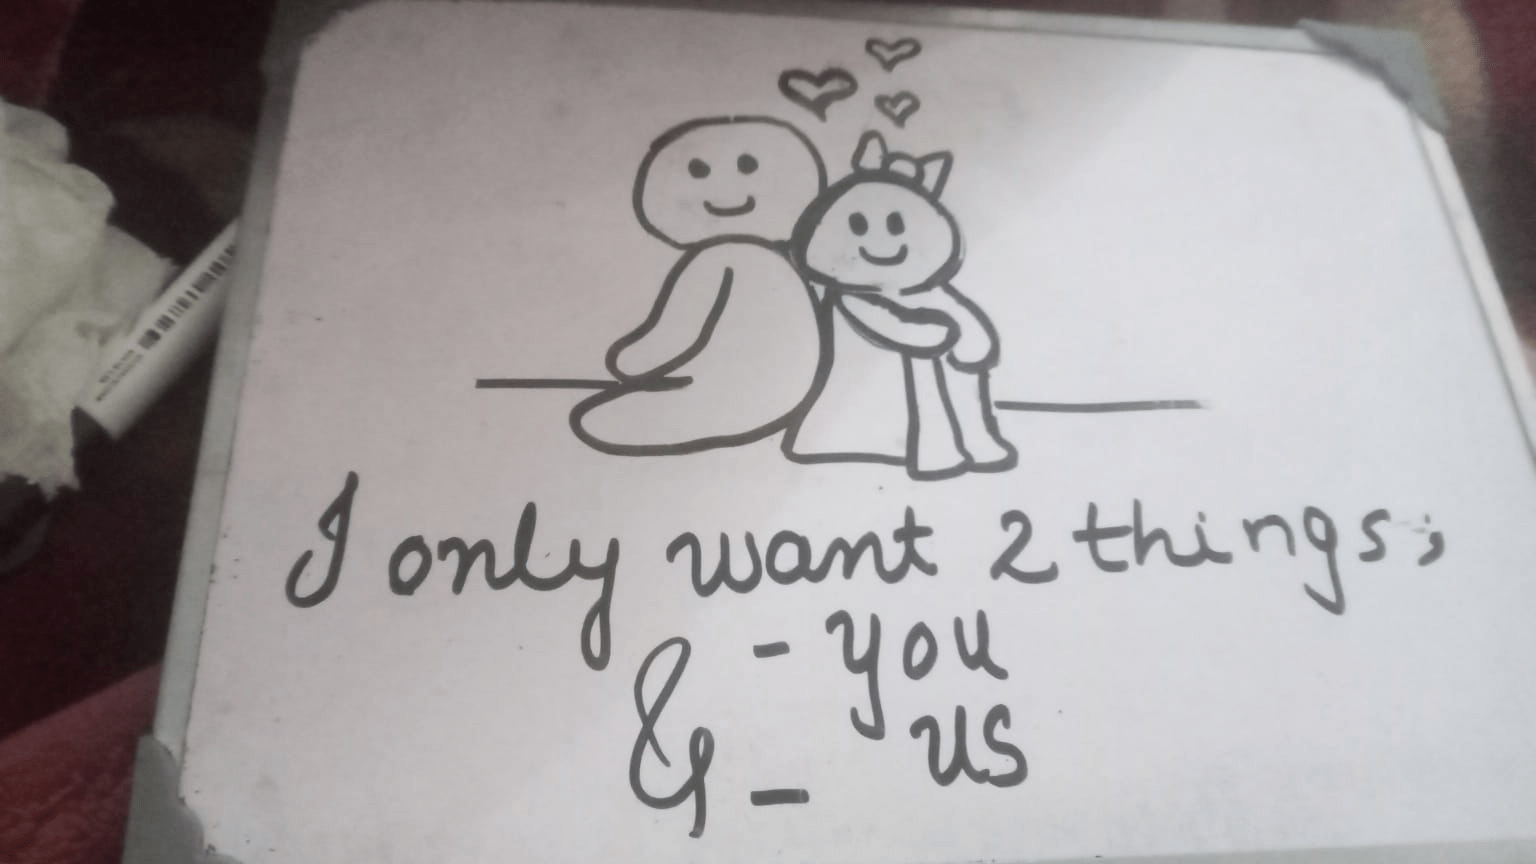 I only want 2 things;
- you
& - us